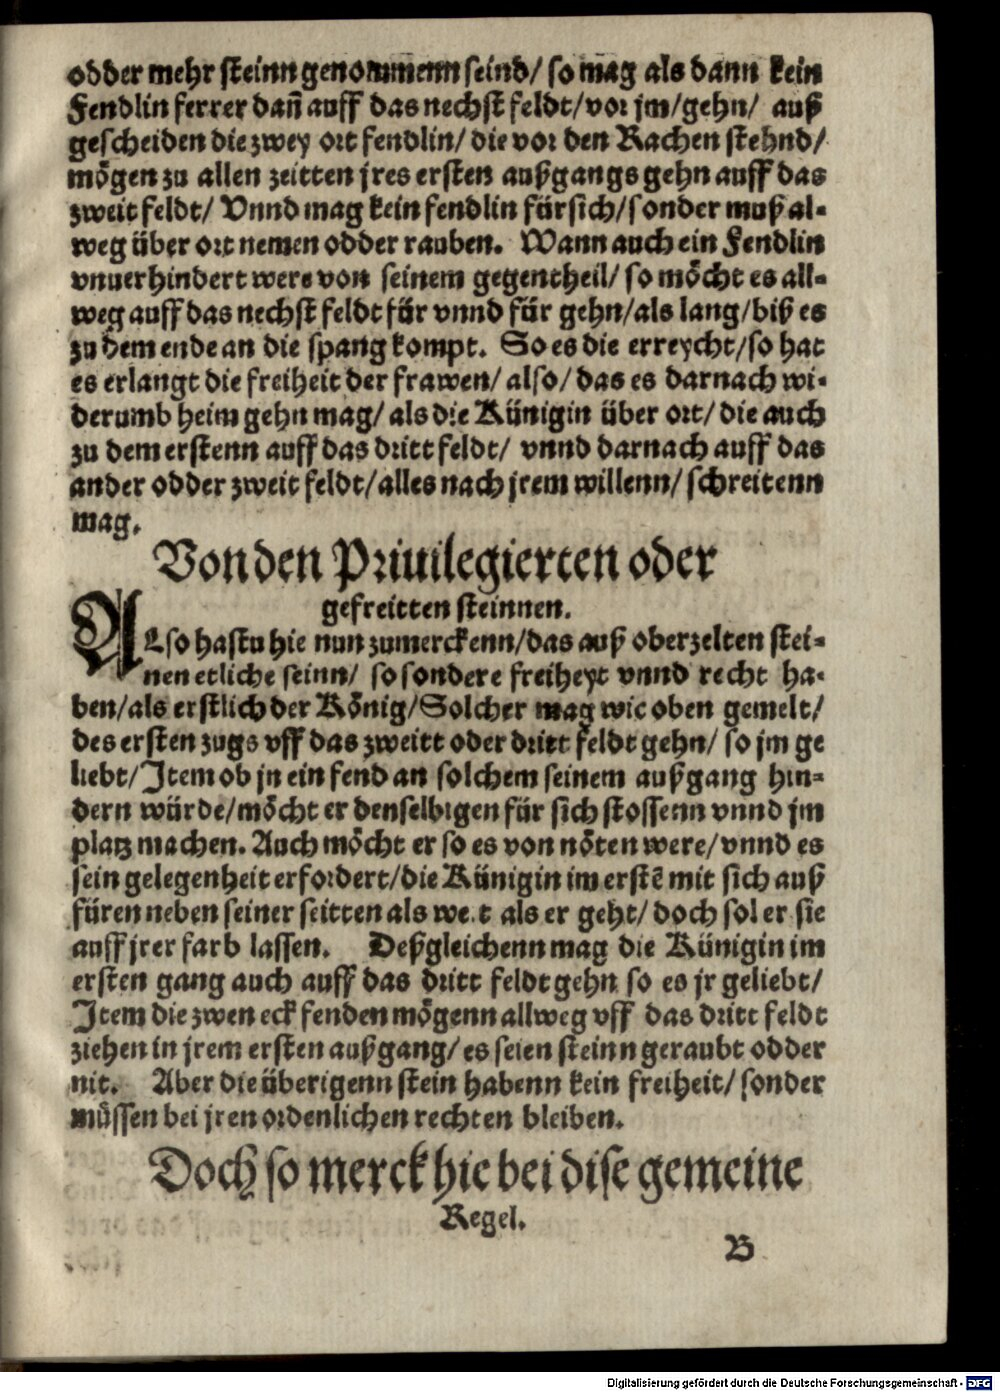 odder mehr steinn genommenn seind/ so mag als dann kein
Fendlin ferrer dañ auff das nechst feldt/vor jm/gehn/ auß
gescheiden die zwey ort fendlin/ die vor den Rachen stehnd/
mögen zu allen zeitten jres ersten außgangs gehn auff das
zweit feldt/ Vnnd mag kein fendlin fürsich/sonder muß al-
weg über ort nemen odder rauben. Wann auch ein Fendlin
vnuerhindert were von seinem gegentheil/ so möcht es all-
weg auff das nechst feldt für vnnd für gehn/als lang/biß es
zu dem ende an die spang kompt. So es die erreycht/so hat
es erlangt die freiheit der frawen/ also/ das es darnach wi-
derumb heim gehn mag/ als die Künigin über ort/ die auch
zu dem erstenn auff das dritt feldt/ vnnd darnach auff das
ander odder zweit feldt/alles nach jrem willenn/ schreitenn
mag.
Von den Priuilegierten oder
gefreitten steinnen.
ALso hastu hie nun zumerckenn/das auß oberzelten stei-
nen etliche seinn/ so sondere freiheyt vnnd recht ha-
ben/als erstlich der König/Solcher mag wie oben gemelt/
des ersten zugs vff das zweitt oder dritt feldt gehn/ so jm ge
liebt/Item ob jn ein fend an solchem seinem außgang hin-
dern würde/möcht er denselbigen für sich stossenn vnnd jm
platz machen. Auch möcht er so es von nöten were/vnnd es
sein gelegenheit erfordert/die Künigin im erstē mit sich auß
füren neben seiner seitten als weit als er geht/ doch sol er sie
auff jrer farb lassen. Deßgleichenn mag die Künigin im
ersten gang auch auff das dritt feldt gehn so es jr geliebt/
Item die zwen eck fenden mögenn allweg vff das dritt feldt
ziehen in jrem ersten außgang/ es seien steinn geraubt odder
nit. Aber die überigenn stein habenn kein freiheit/ sonder
müssen bei jren ordenlichen rechten bleiben.
Doch so merck hie bei dise gemeine
Regel.
B
Digitalisierung gefördert durch die Deutsche Forschungsgemeinschaft - DFG